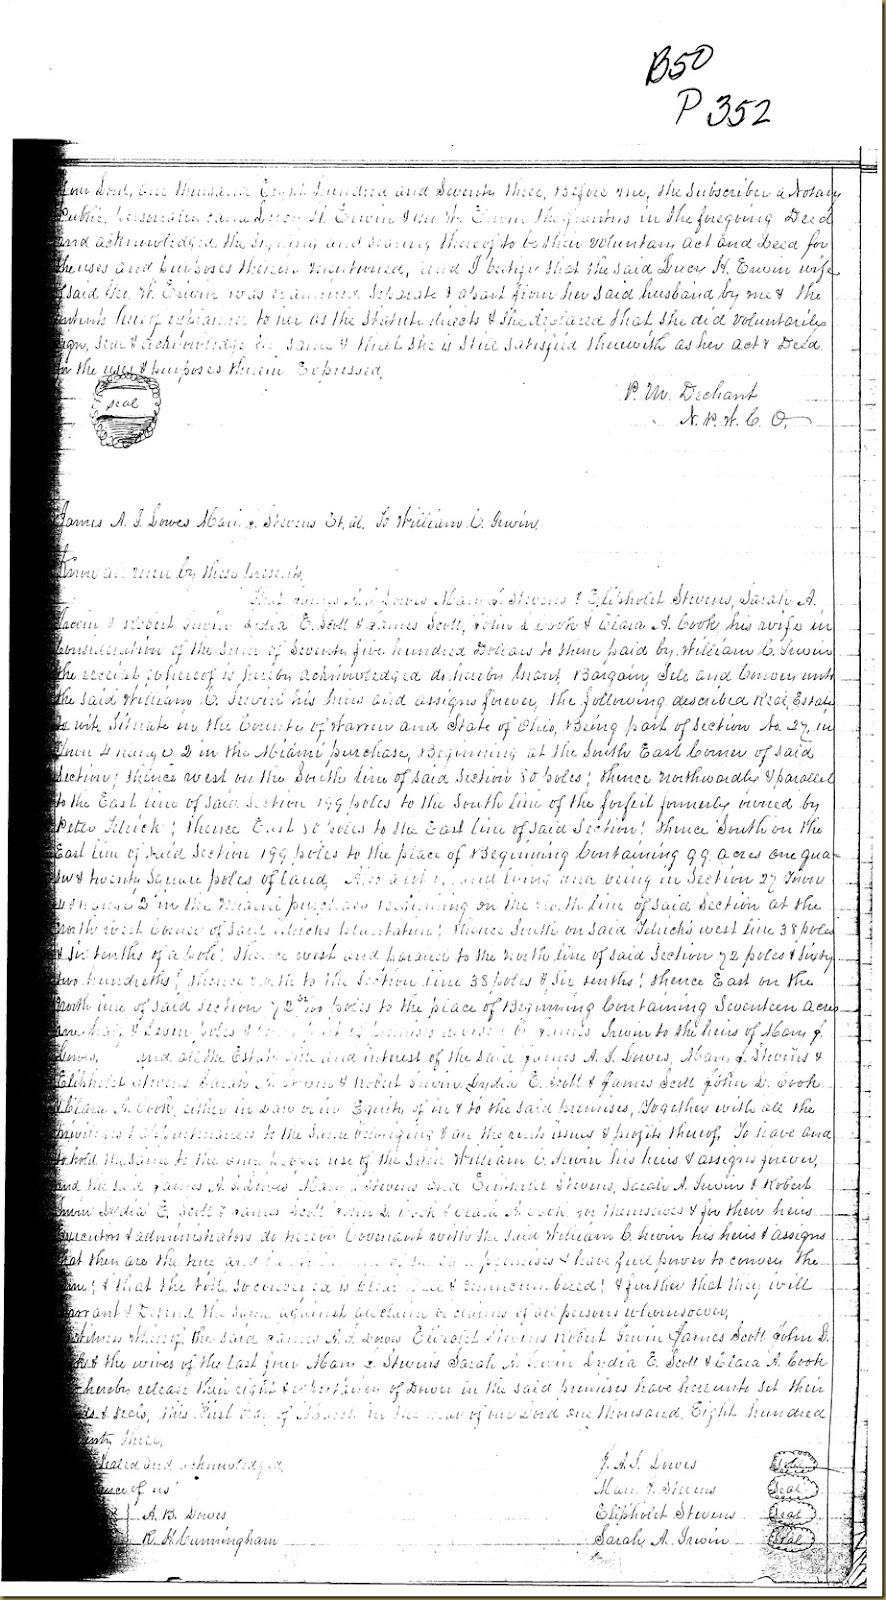 B50
P 352
our Lord, one thousand Eight hundred and Seventy three, Before me, the subscriber a Notary
Public, personally came Lucy H. Erwin & Geo. W. Erwin the grantors in the foregoing Deed
and acknowledged the signing and sealing thereof to be their voluntary act and Deed for
the uses and purposes therein mentioned, and I certify that the said Lucy H. Erwin wife
of said Geo. W. Erwin was examined separate & apart from her said husband by me & the
contents hereof explained to her as the Statute directs & she declared that she did voluntarily
sign, seal & acknowledge the same & that she is still satisfied therewith as her act & Deed
for the uses & purposes therein Expressed,
seal
P. M. Dechant
N. P. W. C. O.
James A. I. Lowes Mary J. Stevens Et. al. To William C. Irwin,
Know all men by these presents,
That James A. I. Lowes Mary J. Stevens & Elipholet Stevens, Sarah A.
Irwin & Robert Irwin Lydia E. Scott & James Scott, John D Cook & Clara A. Cook, his wife in
consideration of the sum of Seventy five hundred Dollars to them paid by William C. Irwin
the receipt whereof is hereby acknowledged do hereby Grant, Bargain, Sell and Convey unto
the said William C. Irwin his heirs and assigns forever, the following described Real Estate
to wit, Situate in the County of Warren and State of Ohio, Being part of Section No. 27, in
Town 4 range 2 in the Miami purchase, Beginning at the South East Corner of said
Section; thence west on the South line of said Section 80 poles; thence northwardly & parallel
to the East line of said Section 199 poles to the South line of the forfeit formerly owned by
Peter ; thence East 80 poles to the East line of said Section; thence South on the
East line of said Section 199 poles to the place of Beginning Containing 99 acres one quar-
ter & twenty Square poles of land, Also a lot of land lying and being in Section 27 Town
4 range 2 in the Miami purchase Beginning on the north line of said Section at the
north west Corner of said plantation; thence South on said west line 38 poles
& Six tenths of a pole; thence west and parallel to the north line of said Section 72 poles & Sixty
two hundreths; thence north to the Section line 38 poles & Six tenths; thence East on the
north line of said Section 72 62/100 poles to the place of Beginning Containing Seventeen acres
one half & Seven poles & being part of premises devised by James Irwin to the heirs of Mary J.
Lowes, and all the Estate title and interest of the said James A. I. Lowes, Mary J. Stevens &
Elipholet Stevens Sarah A. Irwin & Robert Irwin Lydia E. Scott & James Scott John D. Cook
& Clara A. Cook, either in Law or in Equity of in & to the said premises, Together with all the
privileges & appurtenances to the same belonging & all the rents issues & profits thereof, To have and
to hold the same to the only proper use of the said William C. Irwin his heirs & assigns forever,
and the said James A. I. Lowes Mary J. Stevens and Elipholet Stevens, Sarah A. Irwin & Robert
Irwin Lydia E. Scott & James Scott John D. Cook & Clara A. Cook, for themselves & for their heirs
executors & administrators do hereby Covenant with the said William C. Irwin his heirs & assigns
that they are the true and of the said premises & have full power to convey the
same; & that the title so conveyed is Clear free & unincumbered; & further that they will
warrant & Defend the same against all claim or claims of all persons whomsoever,
In Witness whereof the said James A. I. Lowes Elipholet Stevens Robert Irwin James Scott John D.
Cook & the wives of the last four Mary J. Stevens Sarah A. Irwin Lydia E. Scott & Clara A. Cook
hereby release their right & expectation of Dower in the said premises have hereunto set their
hands & seals, this First day of March in the year of our Lord one thousand, Eight hundred
Seventy three,
Sealed and acknowledged
presence of us
A. B. Lowes
R. H. Cunningham
J. A. I. Lowes Seal
Mary J. Stevens Seal
Elipholet Stevens Seal
Sarah A. Irwin Seal